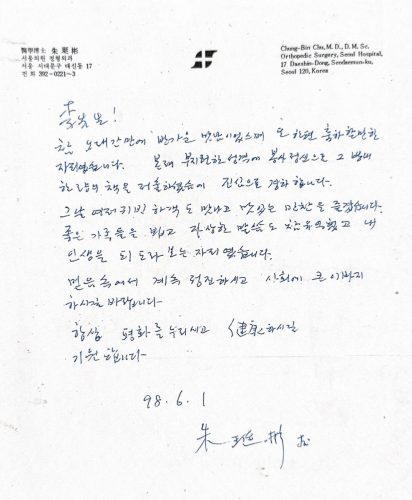 醫學博士 朱 珽 彬
서울의원 정형외과
서울 서대문구 대신동 17
전 화 392-0221~3
Chung-Bin Chu, M. D., D. M. Sc.
Orthopedic Surgery, Seoul Hospital,
17 Daeshin-Dong, Seodaemun-ku,
Seoul 120, Korea
李先生!
참 오래간만에 반가운 만남이었으며 또한 축하할만한
자리였습니다. 본래 부지런한 성격에 봉사정신으로 그
한 권의 책을 저술하였음에 진심으로 경하합니다.
그날 여러 귀빈 하객도 만나고 맛있는 만찬을 즐겼습니다.
좋은 가족들을 뵙고 자상한 말씀도 참 유익했고 내
인생을 되돌아 보는 자리였습니다.
믿음속에서 계속 정진하시고 사회에 큰 이바지
하시길 바랍니다-
항상 평화를 누리시고 健康하시길
기원합니다-
98. 6. 1
朱 珽 彬